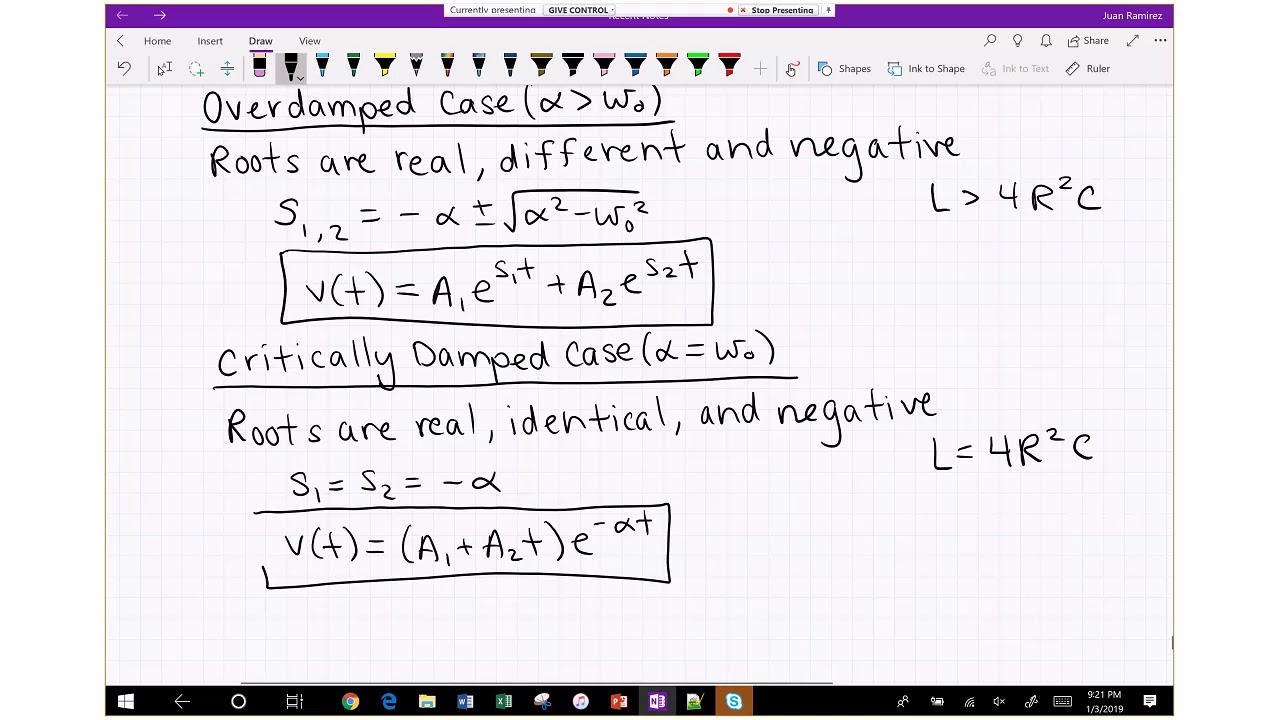 Currently presenting GIVE CONTROL Stop Presenting
Recent Notes Juan Ramirez
Home Insert Draw View Share
Shapes Ink to Shape Ink to Text Ruler
Overdamped Case (α > ω₀)
Roots are real, different and negative
L > 4R²C
S₁,₂ = -α ± √α² - ω₀²
v(t) = A₁e^s₁t + A₂e^s₂t
Critically Damped Case (α = ω₀)
Roots are real, identical, and negative
L = 4R²C
S₁ = S₂ = -α
v(t) = (A₁ + A₂t)e^-αt
9:21 PM
1/3/2019